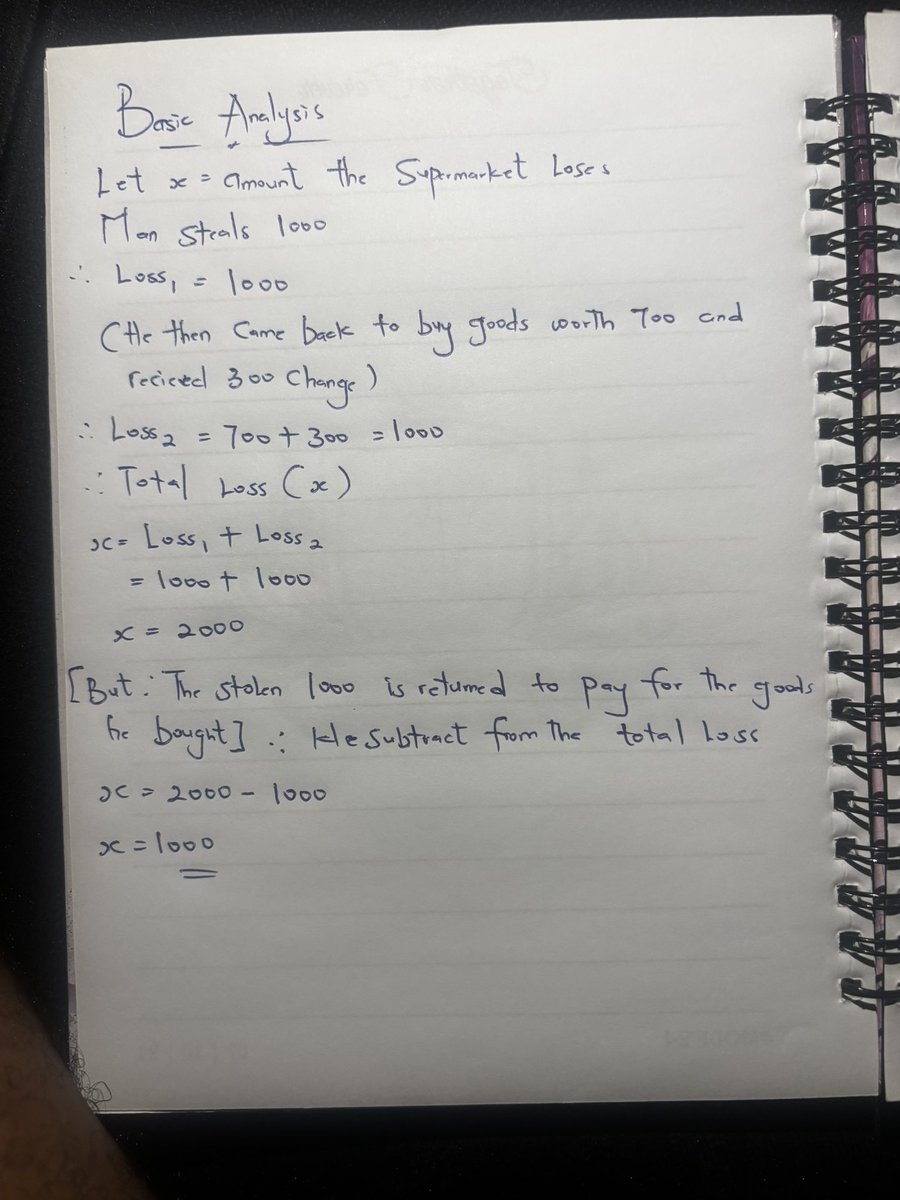 Basic Analysis
Let x = amount the Supermarket Loses
Man steals 1000
∴ Loss₁ = 1000
(He then came back to buy goods worth 700 and
recieved 300 change)
∴ Loss₂ = 700 + 300 = 1000
∴ Total Loss (x)
x = Loss₁ + Loss₂
= 1000 + 1000
x = 2000
[But: The stolen 1000 is returned to pay for the goods
he bought] ∴ We subtract from the total Loss
x = 2000 - 1000
x = 1000